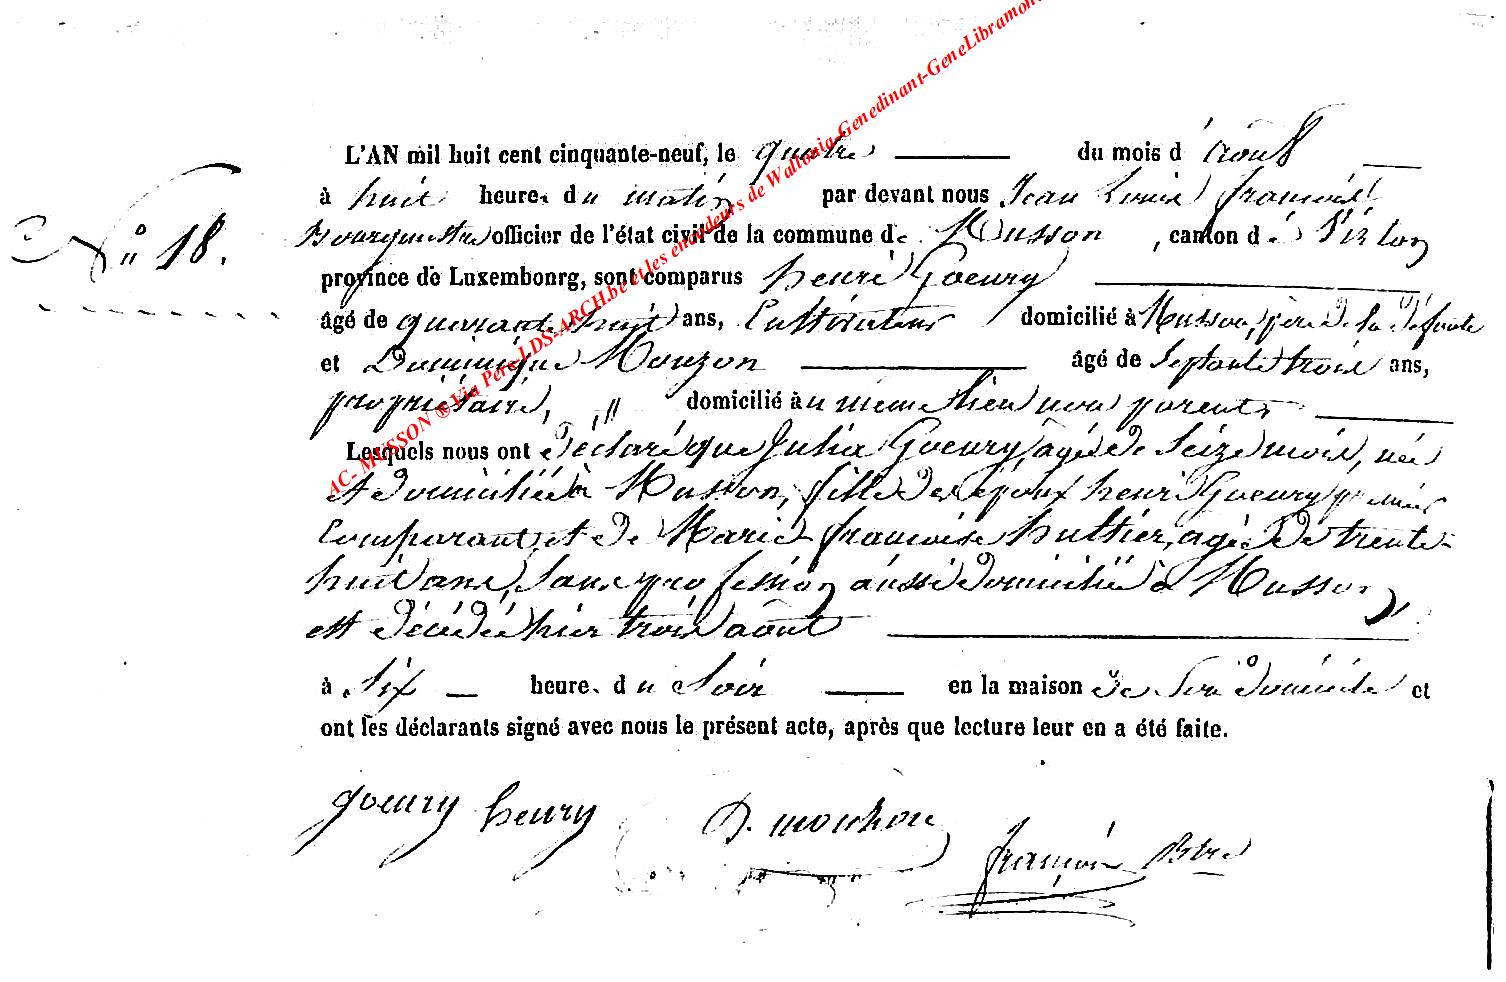 L'AN mil huit cent cinquante-neuf, le quatre du mois d'août
à huit heure. du matin par devant nous Jean Louis françois
Bourguestre officier de l'état civil de la commune de Musson, canton de Virton
province de Luxembourg, sont comparus henri Goeury
âgé de quarante huit ans, Cultivateur domicilié à Musson, père de la défunte
et Dominique Mouzon âgé de septante trois ans,
propriétaire, " domicilié au même lieu non parents
Lesquels nous ont déclaré que Julia Goeury, agée de Seize mois, née
et domiciliée à Musson, fille des époux henri Goeury premier
Comparant, et de Marie françoise huttier, agée de trente-
huit ans, Sans profession aussi domiciliée à Musson,
est décédée hier trois août
à Six heure. du Soir en la maison de Son domicile et
ont les déclarants signé avec nous le présent acte, après que lecture leur en a été faite.
N° 18.
goeury henry D. mouchon
françois Btre
AC- MUSSON ® Via Pers-LDS-ARCH.be et les encodeurs de Wallonia-Genedinant-GeneLibramont